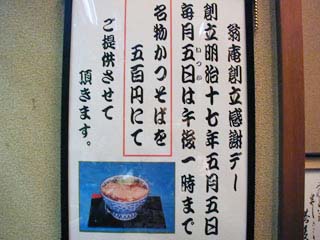 翁庵創立感謝デー
創立明治十七年五月五日
毎月五日は午後一時まで
いつか
名物かつそばを
五百円にて
ご提供させて
頂きます。